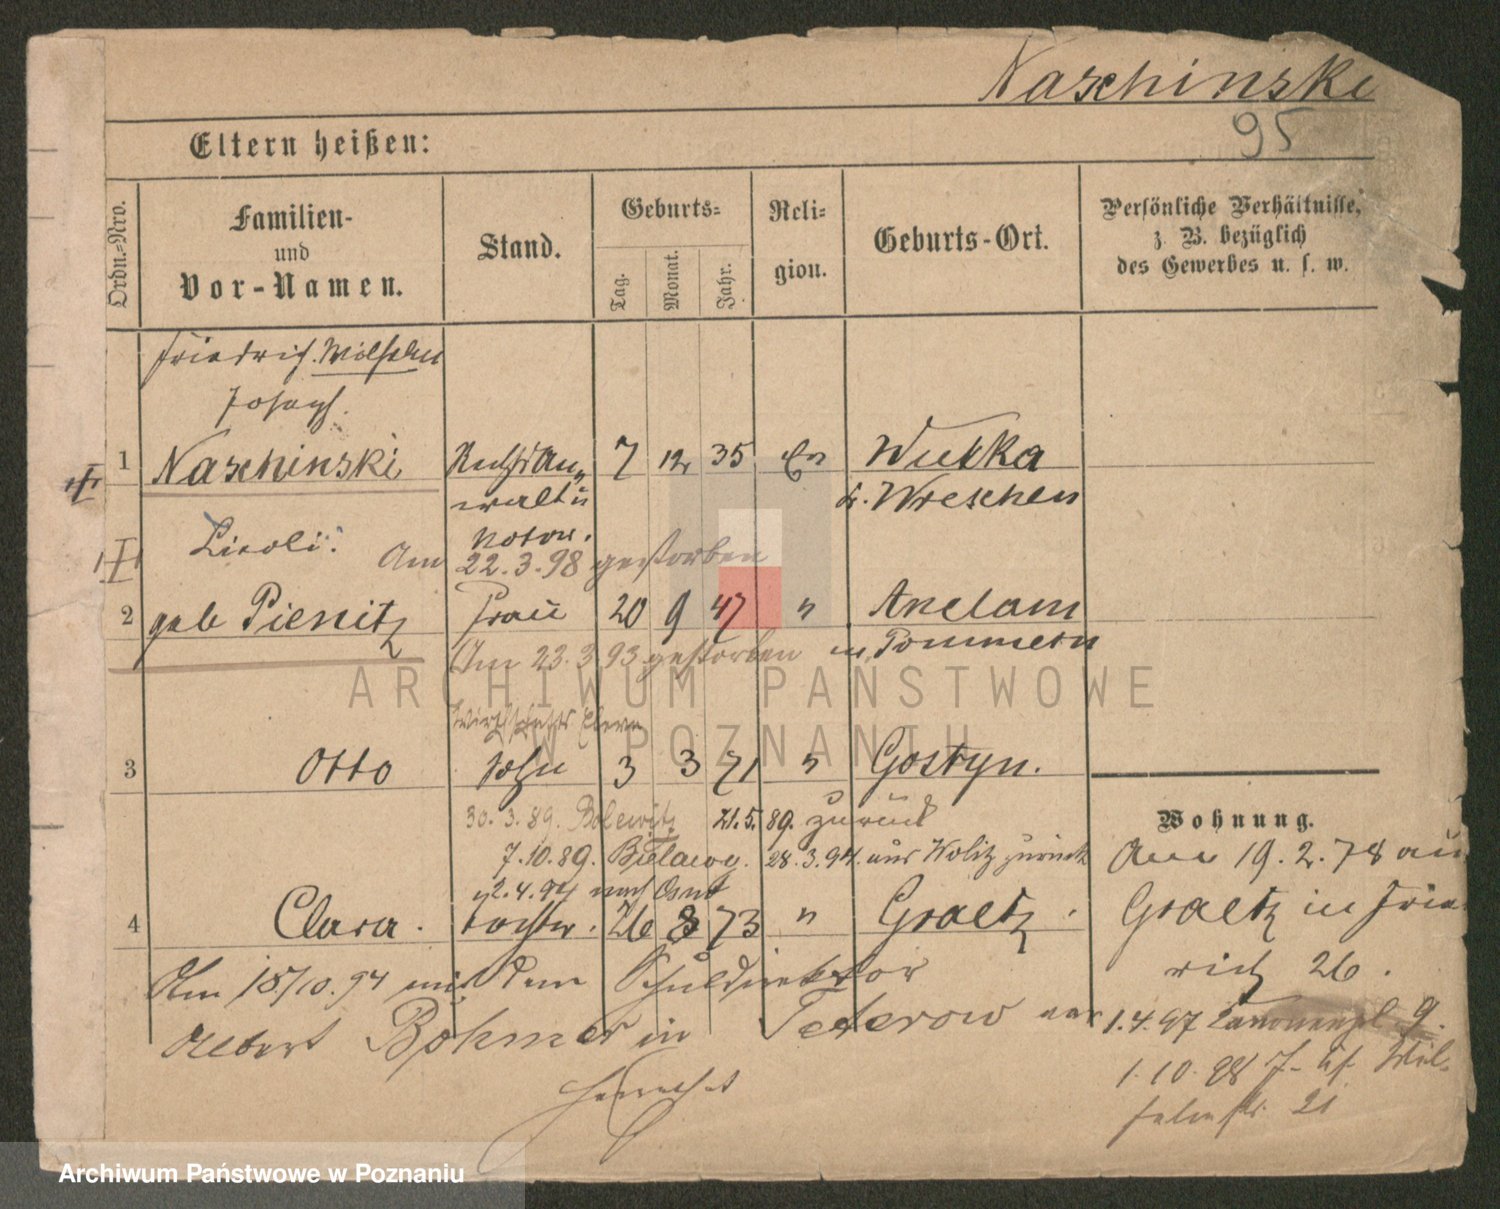 Naschinski
95
Eltern heißen:
Ordn.-Nro.
Familien-
und
Vor-Namen.
Stand.
Geburts-
Tag.
Monat.
Jahr.
Reli-
gion.
Geburts-Ort.
Persönliche Verhältnisse,
z. B. bezüglich
des Gewerbes u. s. w.
Friedrich. Wilhelm
Joseph.
1 Naschinski Rechts An- 7 12 35 Ev Wutka
walt u Kr. Wreschen
Notar.
Am 22.3.98 gestorben
2 geb Pienitz Frau 20 9 47 " Anclam
in Pommern
Am 23.3 93 gestorben
Wirthschafts Eleve
3 Otto Sohn 3 3 71 " Gostyn.
30.3.89. 21.5.89. zurück
7.10.89. 28.3.94. aus Wolitz zurück
2.4.94 nach
4 Clara. Tochter. 26 8 73 " Graetz.
Am 15/10.94 mit dem Schuldirektor
Albert Böhmer in Teterow ver
heirathet
Wohnung.
Am 19.2.78 aus
Graetz in Fried
rich 26.
1.4.97 9.
1.10.98 Wil-
helmstr. 21
ARCHIWUM PAŃSTWOWE
W POZNANIU
Archiwum Państwowe w Poznaniu